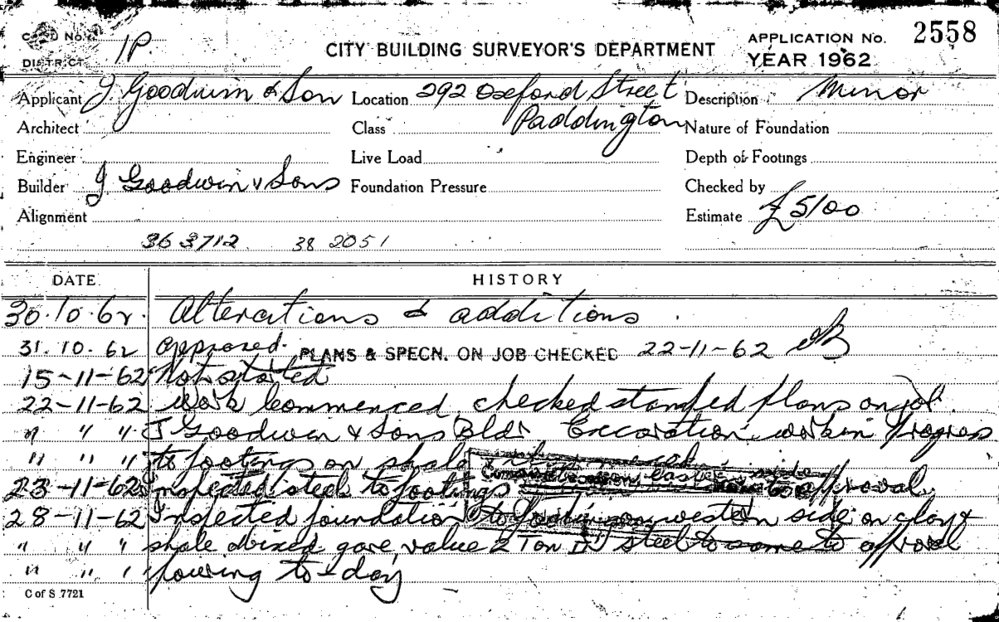 CARD No. 1P CITY BUILDING SURVEYOR'S DEPARTMENT APPLICATION No. 2558
DISTRICT YEAR 1962
Applicant J Goodwin & Son Location 292 Oxford Street Description Minor
Architect Class Paddington Nature of Foundation
Engineer Live Load Depth of Footings
Builder J Goodwin & Sons Foundation Pressure Checked by
Alignment Estimate £5100
36 3712 38 2051
DATE HISTORY
30.10.62. Alterations & additions.
31.10.62 approved. PLANS & SPECN. ON JOB CHECKED 22-11-62
15-11-62 Not started
22-11-62 work commenced checked stamped plans on job.
" " " J Goodwin & Sons Bldr Excavation work in Progress
" " " to footings on shale
23-11-62 Inspected steel to footings eastern side to approval.
28-11-62 Inspected foundation to footings on western side on clay &
" " " shale mixed gave value 2 Ton □' steel to same to approval
" " " pouring to-day
C of S 7721